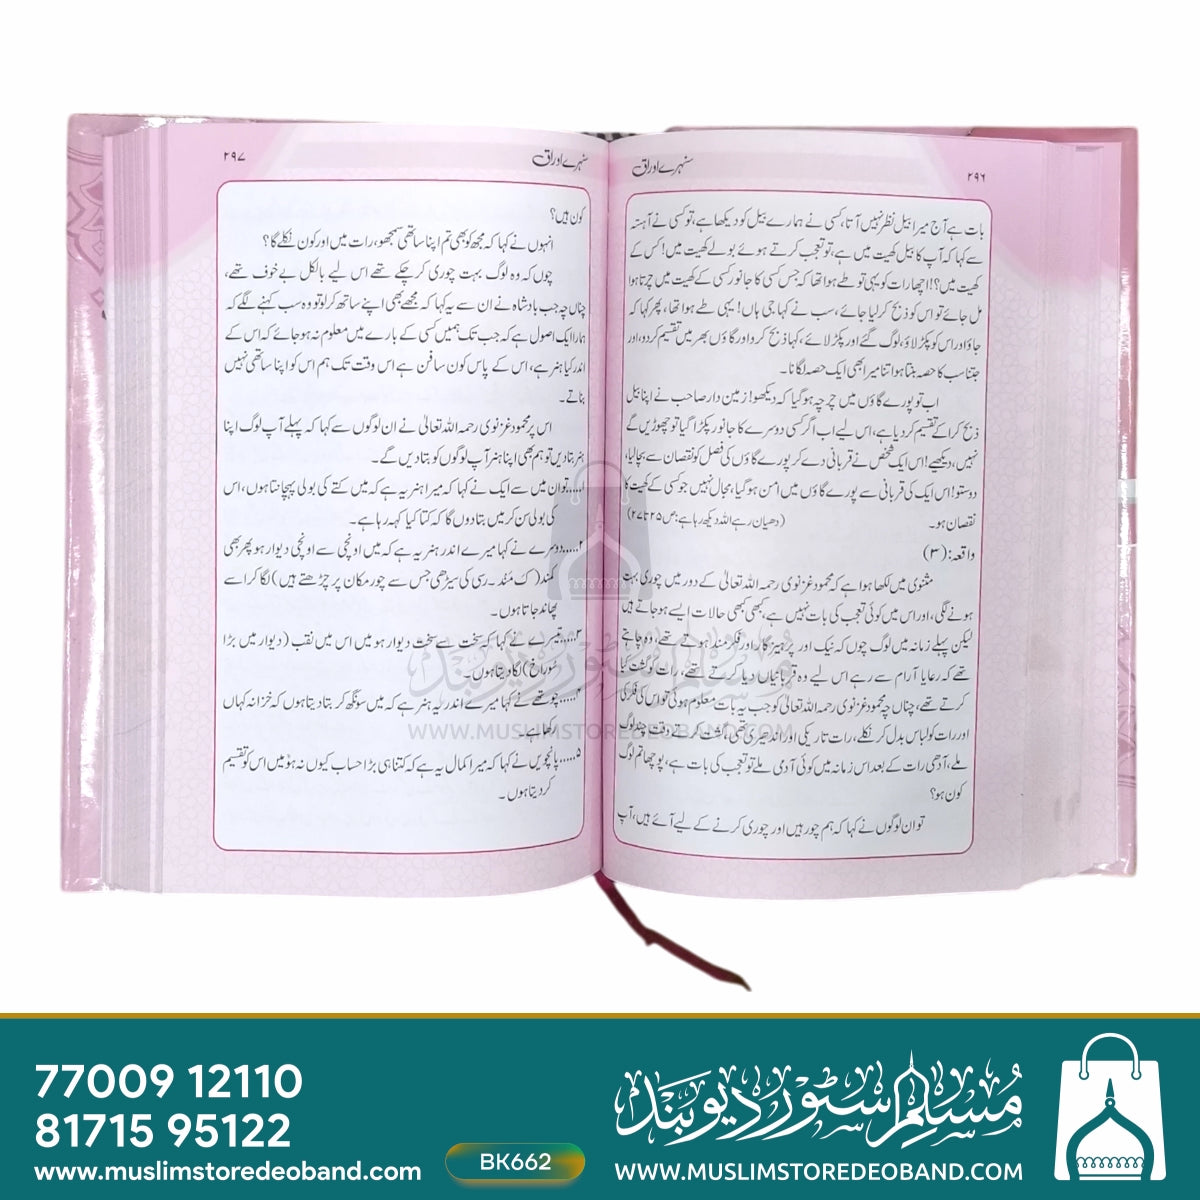 سنہرے اوراق
۲۹۶
بات ہے آج میرا بیل نظر نہیں آتا، کسی نے ہمارے بیل کو دیکھا ہے، تو کسی نے آہستہ
سے کہا کہ آپ کا بیل کھیت میں ہے، تو تعجب کرتے ہوئے بولے کھیت میں! کس کے
کھیت میں؟! اچھا رات کو یہی تو طے ہوا تھا کہ جس کسی کا جانور کسی کے کھیت میں چرتا ہوا
مل جائے تو اس کو ذبح کر لیا جائے، سب نے کہا جی ہاں! یہی طے ہوا تھا، پھر کہا کہ
جاؤ اور اس کو پکڑ لاؤ، لوگ گئے اور پکڑ لائے، کہا ذبح کرو اور گاؤں بھر میں تقسیم کردو، اور
جتنا سب کا حصہ بنتا ہو اتنا میرا بھی ایک حصہ لگانا۔
اب تو پورے گاؤں میں چرچہ ہو گیا کہ دیکھو! زمین دار صاحب نے اپنا بیل
ذبح کرا کے تقسیم کر دیا ہے، اس لیے اب اگر کسی دوسرے کا جانور پکڑا گیا تو چھوڑیں گے
نہیں، دیکھیے! اس ایک شخص نے قربانی دے کر پورے گاؤں کی فصل کو نقصان سے بچا لیا،
دوستو! اس ایک کی قربانی سے پورے گاؤں میں امن ہو گیا، مجال نہیں جو کسی کے کھیت کا
نقصان ہو۔ (دھیان رہے اللہ دیکھ رہا ہے: ص ۲۵ تا ۲۷)
واقعہ: (۳)
مثنوی میں لکھا ہوا ہے کہ محمود غزنوی رحمہ اللہ تعالیٰ کے دور میں چوری بہت
ہونے لگی، اور اس میں کوئی تعجب کی بات نہیں ہے، کبھی کبھی حالات ایسے ہو جاتے ہیں
لیکن پہلے زمانہ میں لوگ چوں کہ نیک اور پرہیزگار اور فکرمند ہوتے تھے، وہ چاہتے
تھے کہ رعایا آرام سے رہے اس لیے وہ قربانیاں دیا کرتے تھے، رات کو گشت کیا
کرتے تھے، چناں چہ محمود غزنوی رحمہ اللہ تعالیٰ کو جب یہ بات معلوم ہوئی تو اس کی فکر کی
اور رات کو لباس بدل کر نکلے، رات تاریکی اور اندھیری تھی، گشت کرتے وقت چند لوگ
ملے، آدھی رات کے بعد اس زمانہ میں کوئی آدمی ملے تو تعجب کی بات ہے، پوچھا تم لوگ
کون ہو؟
تو ان لوگوں نے کہا کہ ہم چور ہیں اور چوری کرنے کے لیے آئے ہیں، آپ
سنہرے اوراق
۲۹۷
کون ہیں؟
انہوں نے کہا کہ مجھ کو بھی تم اپنا ساتھی سمجھو، رات میں اور کون نکلے گا؟
چوں کہ وہ لوگ بہت چوری کر چکے تھے اس لیے بالکل بے خوف تھے،
چناں چہ جب بادشاہ نے ان سے یہ کہا کہ مجھے بھی اپنے ساتھ کر لو تو وہ سب کہنے لگے کہ
ہمارا ایک اصول ہے کہ جب تک ہمیں کسی کے بارے میں معلوم نہ ہو جائے کہ اس کے
اندر کیا ہنر ہے، اس کے پاس کون سا فن ہے اس وقت تک ہم اس کو اپنا ساتھی نہیں
بناتے۔
اس پر محمود غزنوی رحمہ اللہ تعالیٰ نے ان لوگوں سے کہا کہ پہلے آپ لوگ اپنا
ہنر بتا دیں تو ہم بھی اپنا ہنر آپ لوگوں کو بتا دیں گے۔
۱.....تو ان میں سے ایک نے کہا کہ میرا ہنر یہ ہے کہ میں کتے کی بولی پہچانتا ہوں، اس
کی بولی سن کر میں بتا دوں گا کہ کتا کیا کہہ رہا ہے۔
۲.....دوسرے نے کہا میرے اندر ہنر یہ ہے کہ میں اونچی سے اونچی دیوار ہو پھر بھی
کمند (ک مَند۔ رسی کی سیڑھی جس سے چور مکان پر چڑھتے ہیں) لگا کر اسے
پھاند جاتا ہوں۔
۳.....تیسرے نے کہا کہ سخت سے سخت دیوار ہو میں اس میں نقب (دیوار میں بڑا
سوراخ) لگا دیتا ہوں۔
۴.....چوتھے نے کہا میرے اندر یہ ہنر ہے کہ میں سونگھ کر بتا دیتا ہوں کہ خزانہ کہاں
رکھا ہے۔
۵.....پانچویں نے کہا کہ میرا کمال یہ ہے کہ کتنا ہی بڑا حساب کیوں نہ ہو میں اس کو تقسیم
کر دیتا ہوں۔
مسلم سٹور دیوبند
WWW.MUSLIMSTOREDEOBAND.COM
77009 12110
81715 95122
www.muslimstoredeoband.com
BK662
مسلم سٹور دیوبند
WWW.MUSLIMSTOREDEOBAND.COM